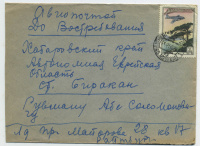 Авиопочтой
До Востребования
Хабаровский край
Автономная Еврейская
область
ст. Биракан
Рувшицу Абе Соломонови-
чу
Ад при Майорове 28 кв 17